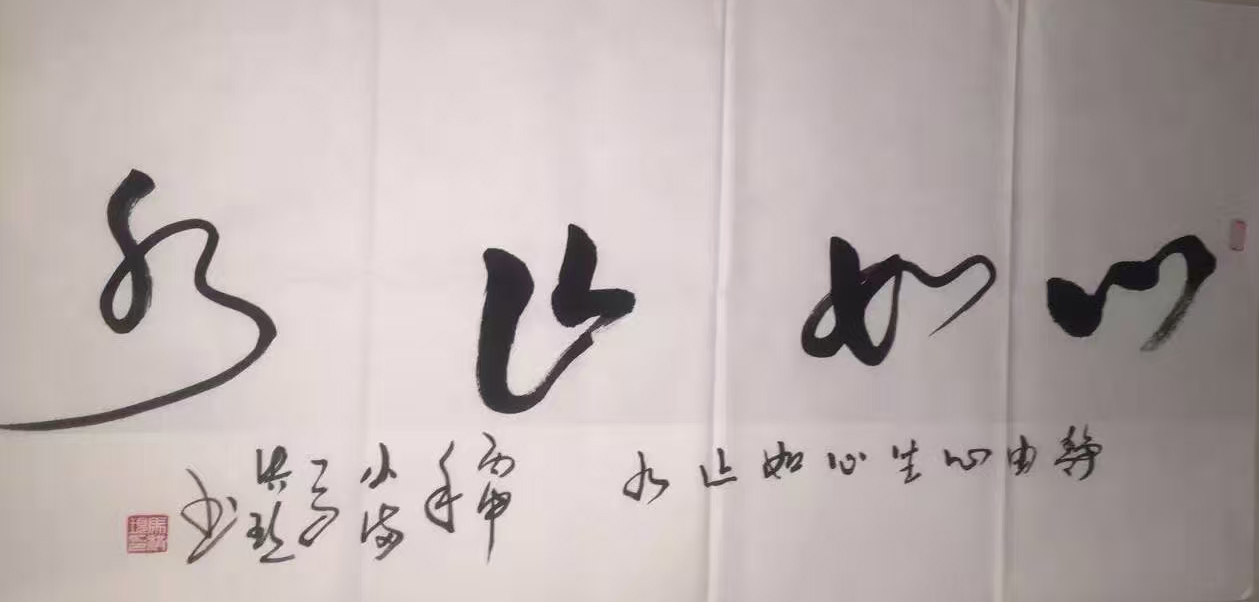 心如止水
静由心生心如止水
丙申年
小满
书